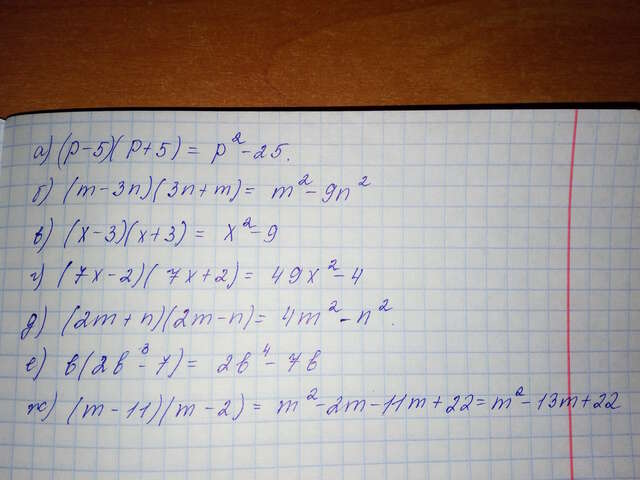 а) (p-5)(p+5) = p²-25.
б) (m-3n)(3n+m) = m²-9n²
в) (x-3)(x+3) = x²-9
г) (7x-2)(7x+2) = 49x²-4
д) (2m+n)(2m-n) = 4m²-n².
е) b(2b³-7) = 2b⁴-7b
ж) (m-11)(m-2) = m²-2m-11m+22 = m²-13m+22